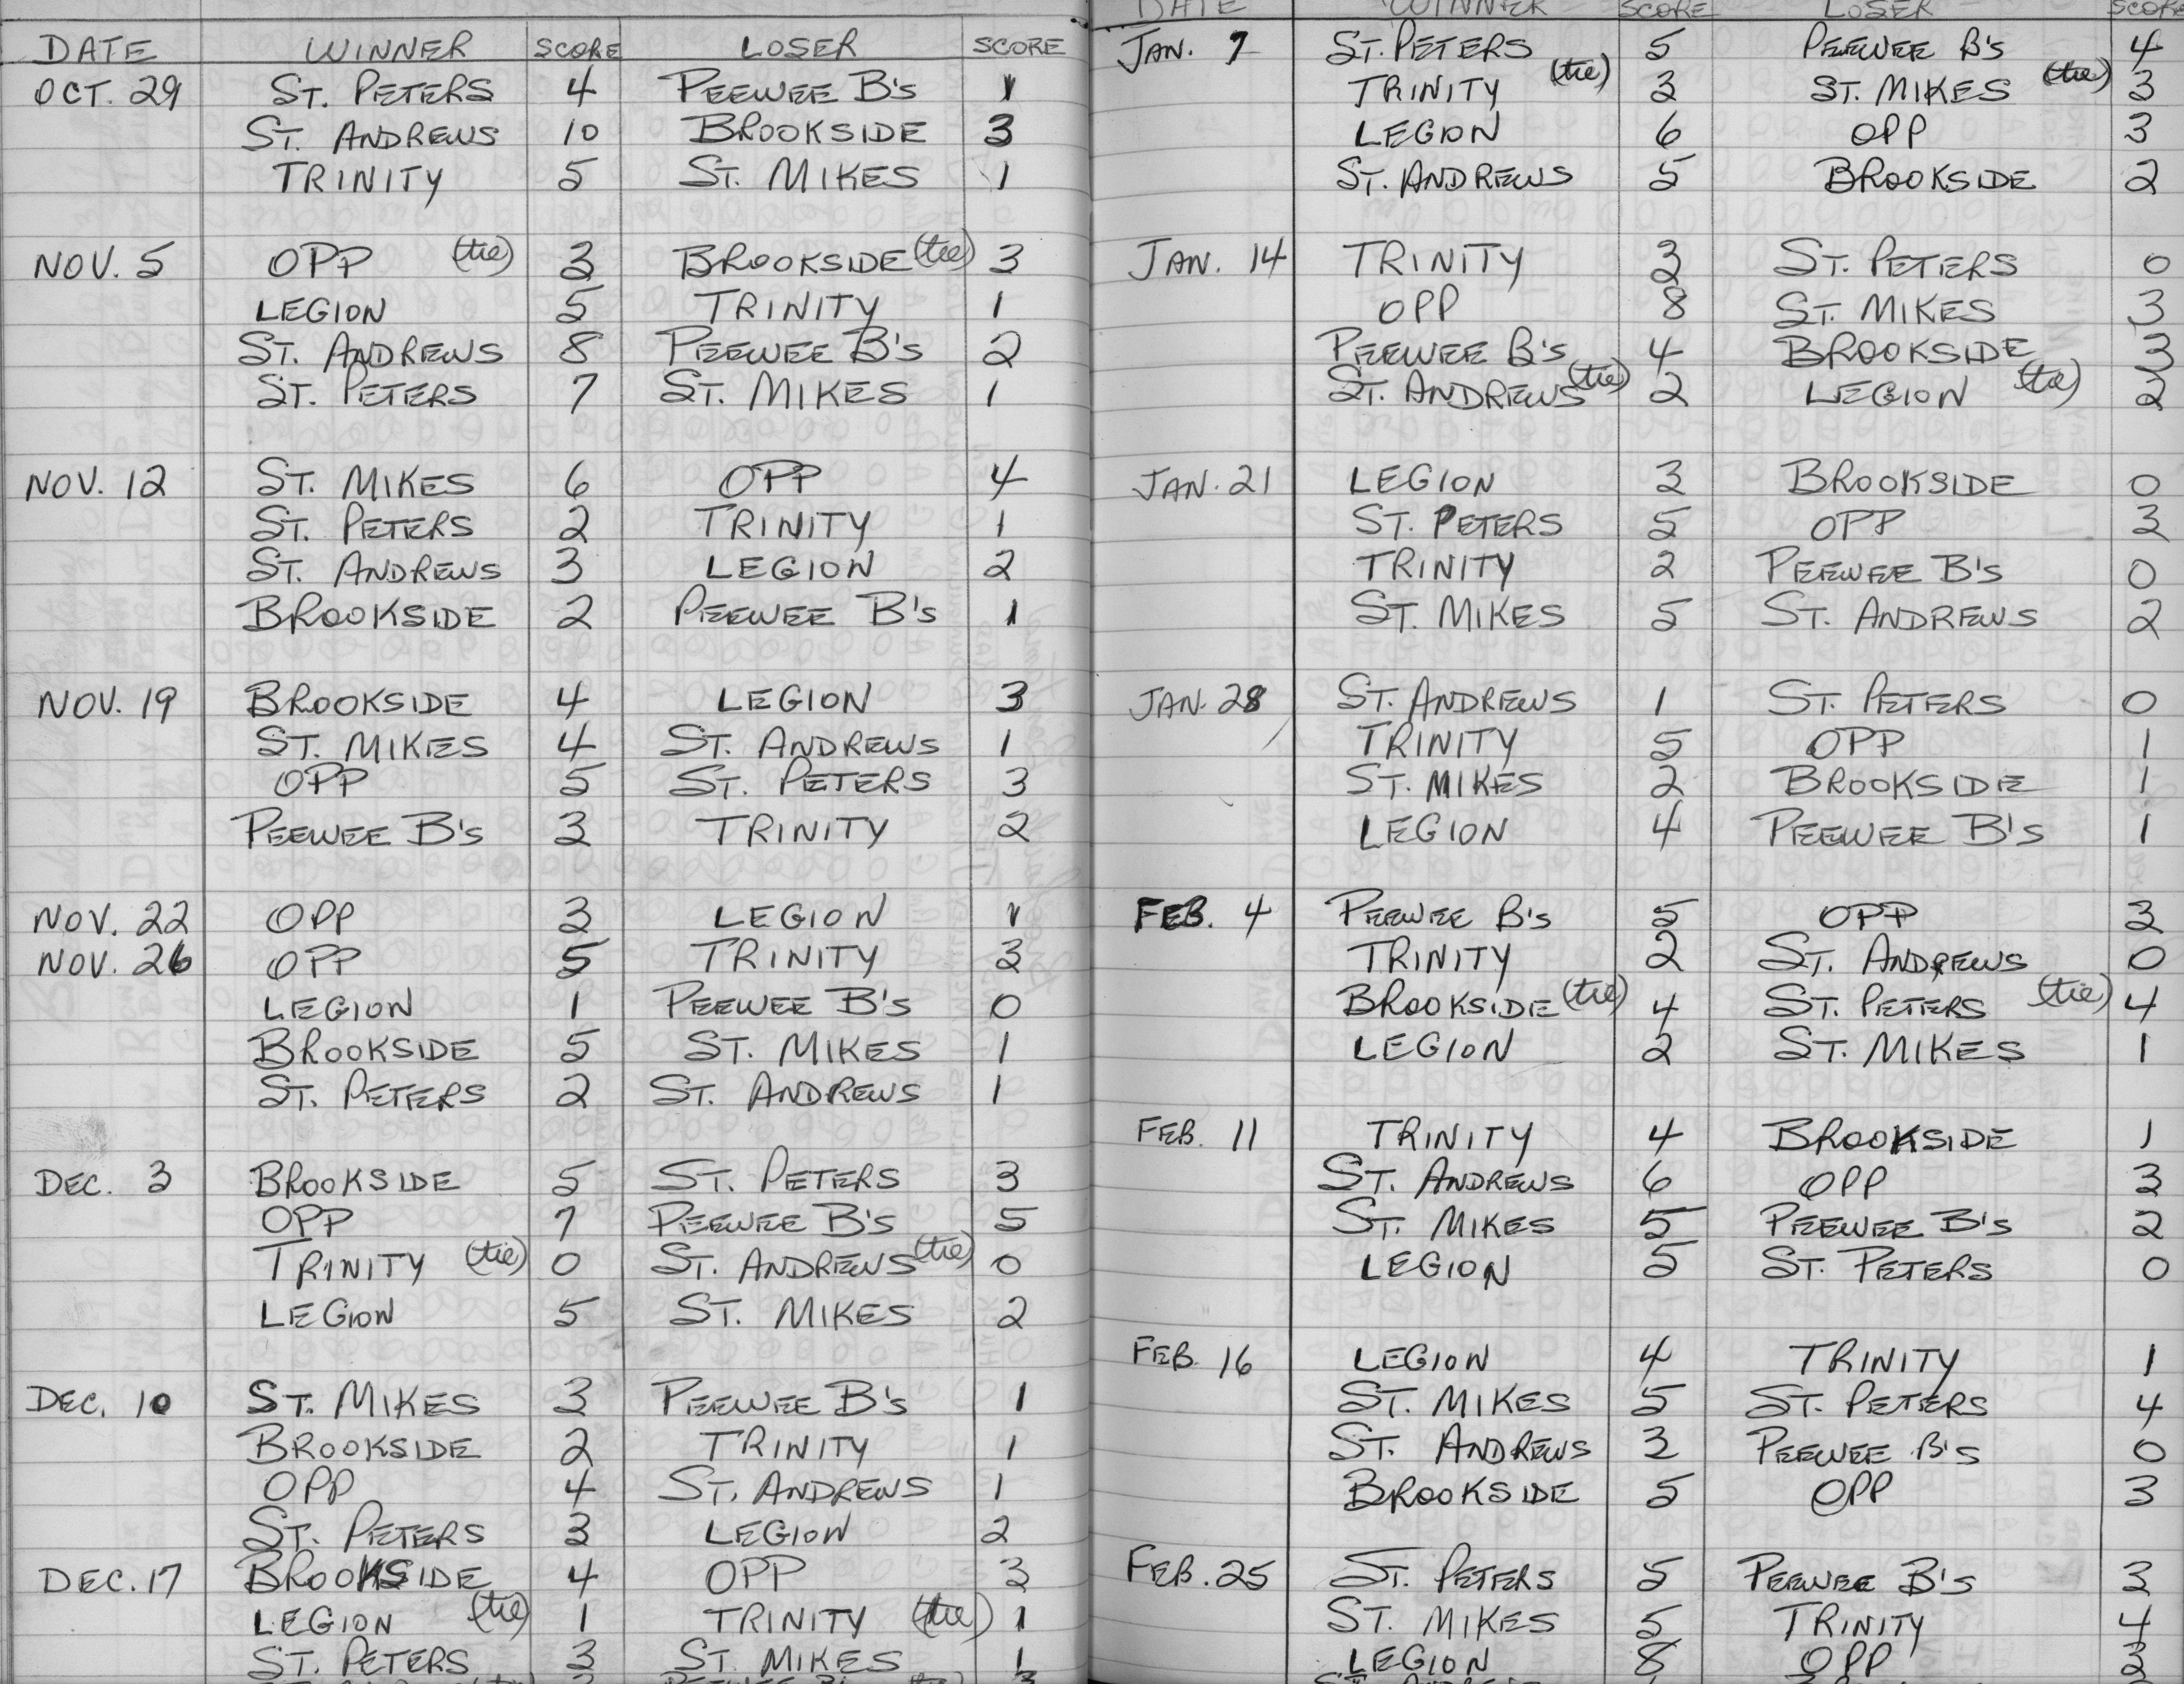 DATE WINNER SCORE LOSER SCORE
OCT. 29 ST. PETERS 4 PEEWEE B's 1
ST. ANDREWS 10 BROOKSIDE 3
TRINITY 5 ST. MIKES 1
NOV. 5 OPP (tie) 3 BROOKSIDE (tie) 3
LEGION 5 TRINITY 1
ST. ANDREWS 8 PEEWEE B's 2
ST. PETERS 7 ST. MIKES 1
NOV. 12 ST. MIKES 6 OPP 4
ST. PETERS 2 TRINITY 1
ST. ANDREWS 3 LEGION 2
BROOKSIDE 2 PEEWEE B's 1
NOV. 19 BROOKSIDE 4 LEGION 3
ST. MIKES 4 ST. ANDREWS 1
OPP 5 ST. PETERS 3
PEEWEE B's 3 TRINITY 2
NOV. 22 OPP 3 LEGION 1
NOV. 26 OPP 5 TRINITY 3
LEGION 1 PEEWEE B's 0
BROOKSIDE 5 ST. MIKES 1
ST. PETERS 2 ST. ANDREWS 1
DEC. 3 BROOKSIDE 5 ST. PETERS 3
OPP 7 PEEWEE B's 5
TRINITY (tie) 0 ST. ANDREWS (tie) 0
LEGION 5 ST. MIKES 2
DEC. 10 ST. MIKES 3 PEEWEE B's 1
BROOKSIDE 2 TRINITY 1
OPP 4 ST. ANDREWS 1
ST. PETERS 3 LEGION 2
DEC. 17 BROOKSIDE 4 OPP 3
LEGION (tie) 1 TRINITY (tie) 1
ST. PETERS 3 ST. MIKES 1
DATE WINNER SCORE LOSER SCORE
JAN. 7 ST. PETERS 5 PEEWEE B's 4
TRINITY (tie) 3 ST. MIKES (tie) 3
LEGION 6 OPP 3
ST. ANDREWS 5 BROOKSIDE 2
JAN. 14 TRINITY 3 ST. PETERS 0
OPP 8 ST. MIKES 3
PEEWEE B's 4 BROOKSIDE 3
ST. ANDREWS (tie) 2 LEGION (tie) 2
JAN. 21 LEGION 3 BROOKSIDE 0
ST. PETERS 5 OPP 3
TRINITY 2 PEEWEE B's 0
ST. MIKES 5 ST. ANDREWS 2
JAN. 28 ST. ANDREWS 1 ST. PETERS 0
TRINITY 5 OPP 1
ST. MIKES 2 BROOKSIDE 1
LEGION 4 PEEWEE B's 1
FEB. 4 PEEWEE B's 5 OPP 3
TRINITY 2 ST. ANDREWS 0
BROOKSIDE (tie) 4 ST. PETERS (tie) 4
LEGION 2 ST. MIKES 1
FEB. 11 TRINITY 4 BROOKSIDE 1
ST. ANDREWS 6 OPP 3
ST. MIKES 5 PEEWEE B's 2
LEGION 5 ST. PETERS 0
FEB. 16 LEGION 4 TRINITY 1
ST. MIKES 5 ST. PETERS 4
ST. ANDREWS 3 PEEWEE B's 0
BROOKSIDE 5 OPP 3
FEB. 25 ST. PETERS 5 PEEWEE B's 3
ST. MIKES 5 TRINITY 4
LEGION 8 OPP 3